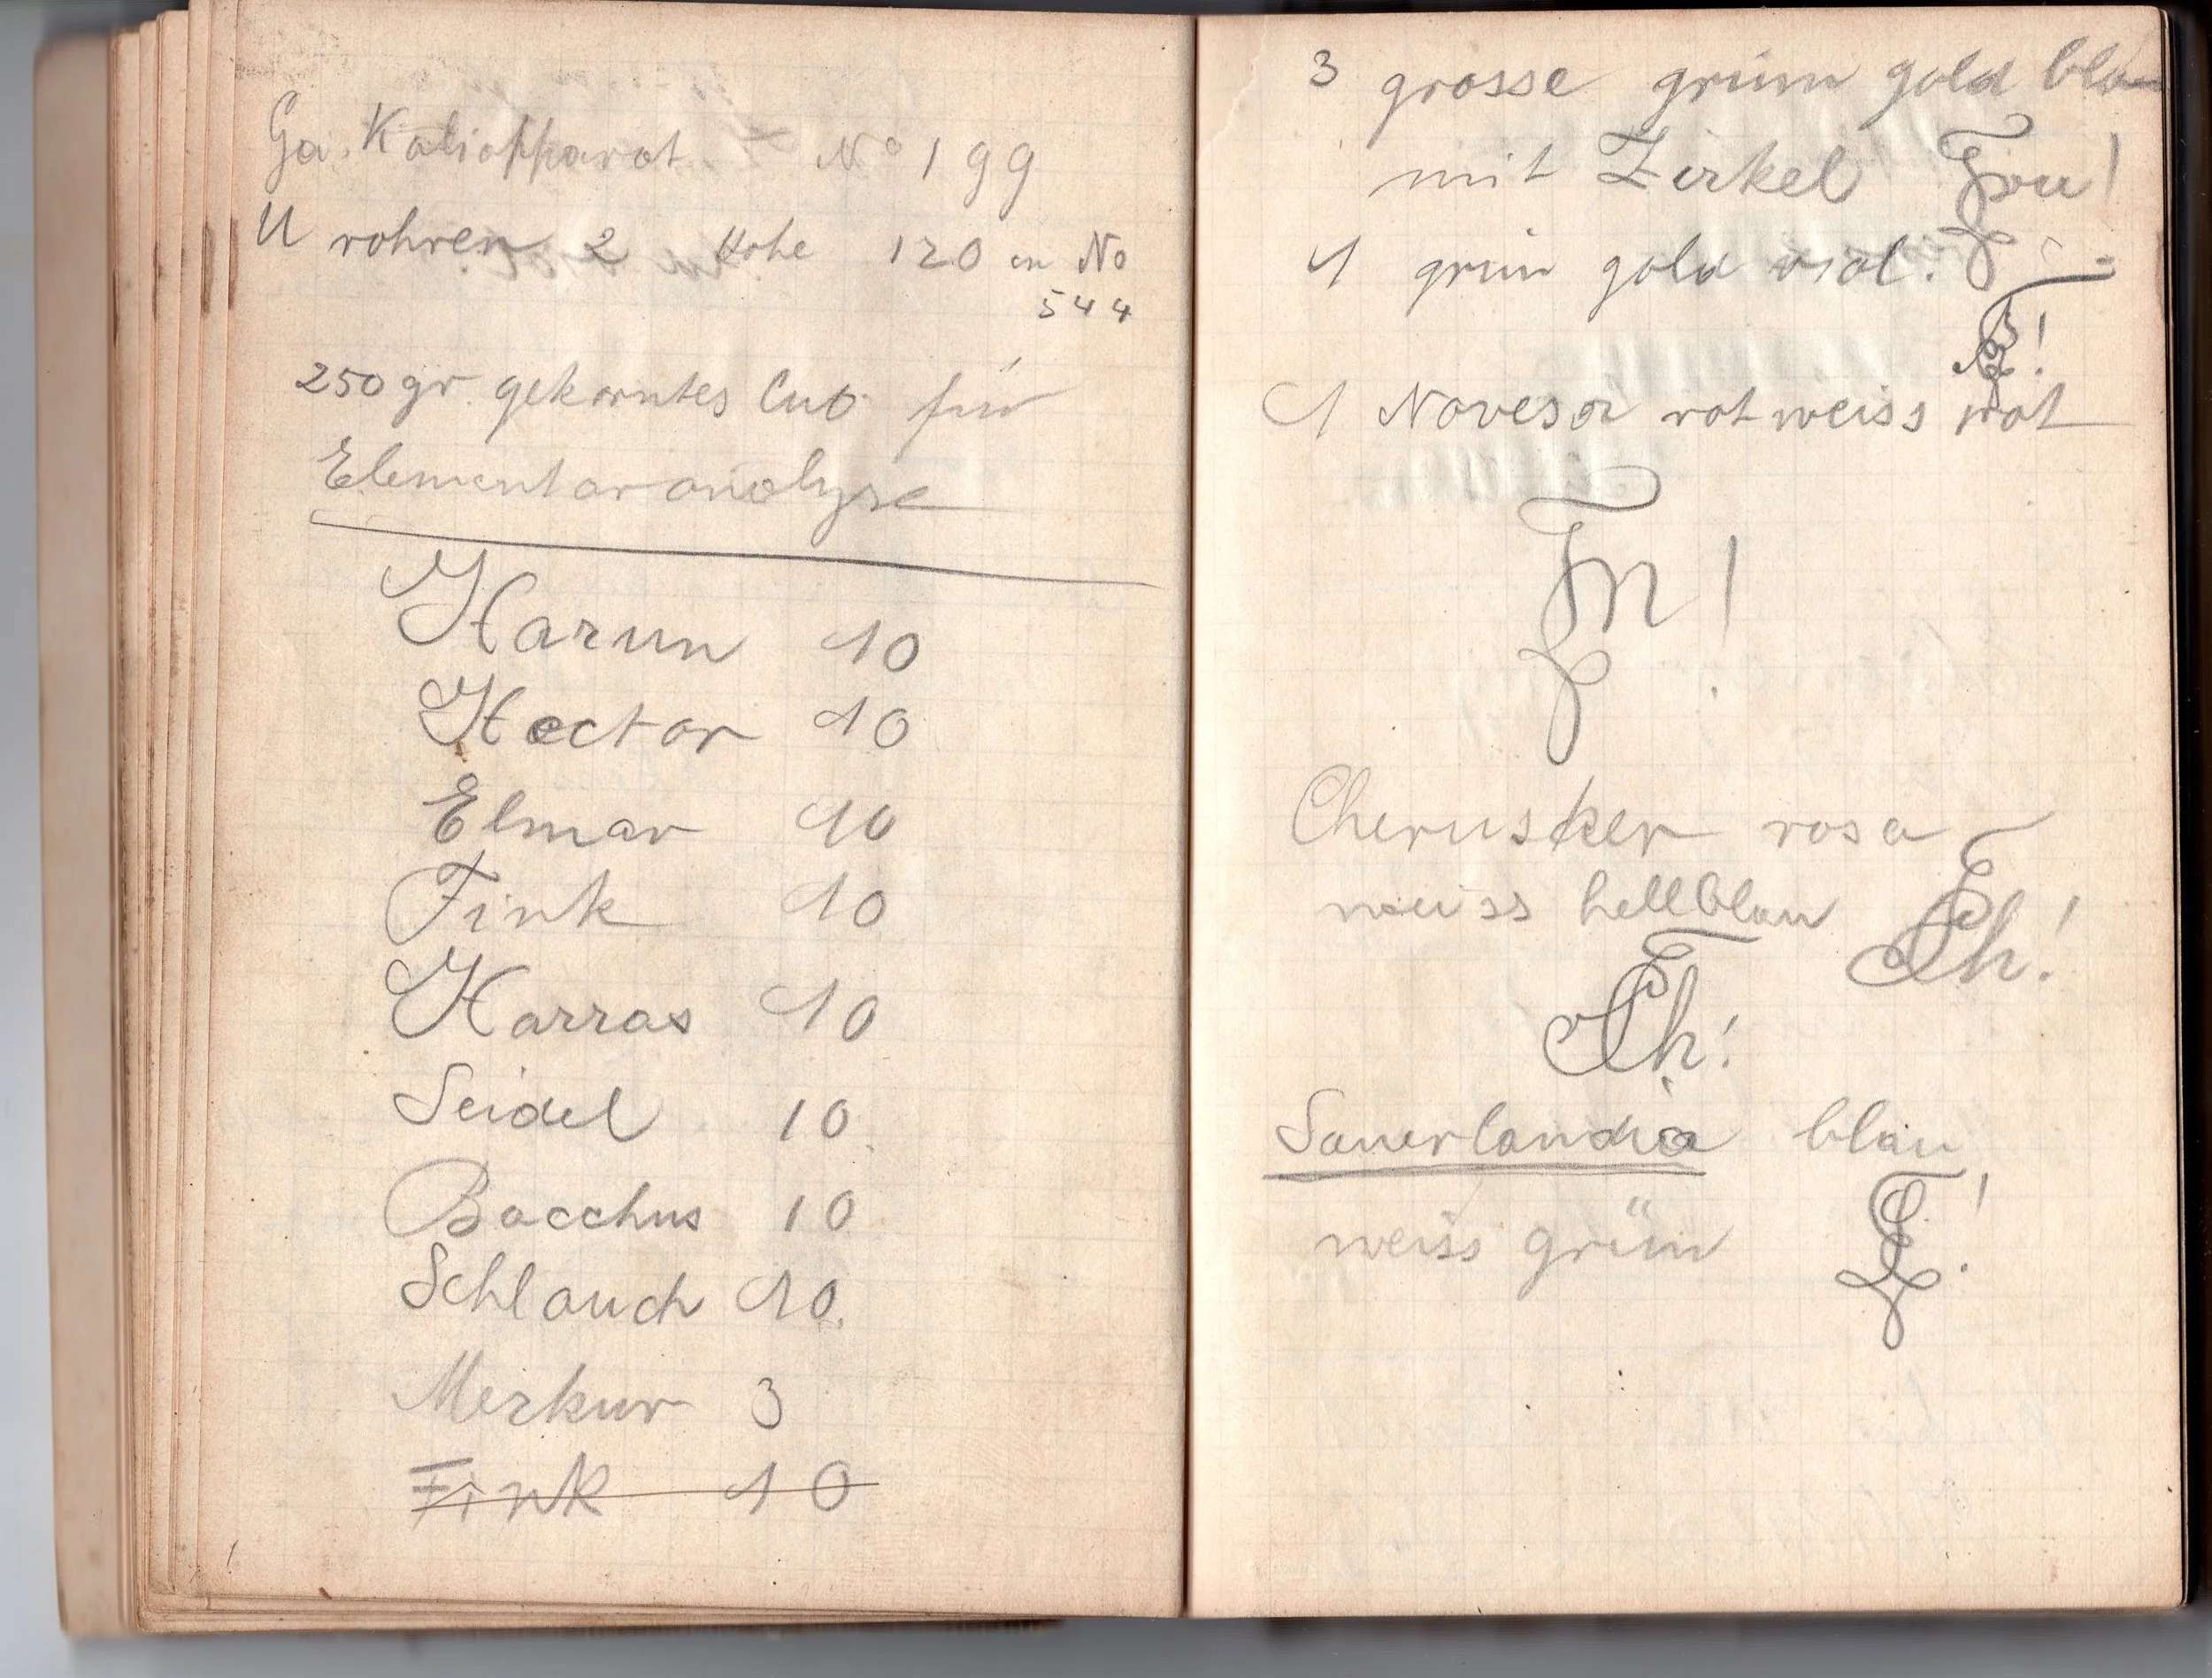 Ga. Kaliapparat N° 199
U rohren 2 Hohe 120 cm No
544
250 gr. gekorntes CuO für
Elementaranalyse
Harun 10
Hector 10
Elmar 10
Fink 10
Harras 10
Seidel 10
Bacchus 10
Schlauch 10.
Merkur 3
Fink 10
3 grosse grün gold blau
mit Zirkel
1 grün gold viol.
1 Novesia rot weiss rot
Cherusker rosa
weiss hellblau
Sauerlandia blau
weiss grün